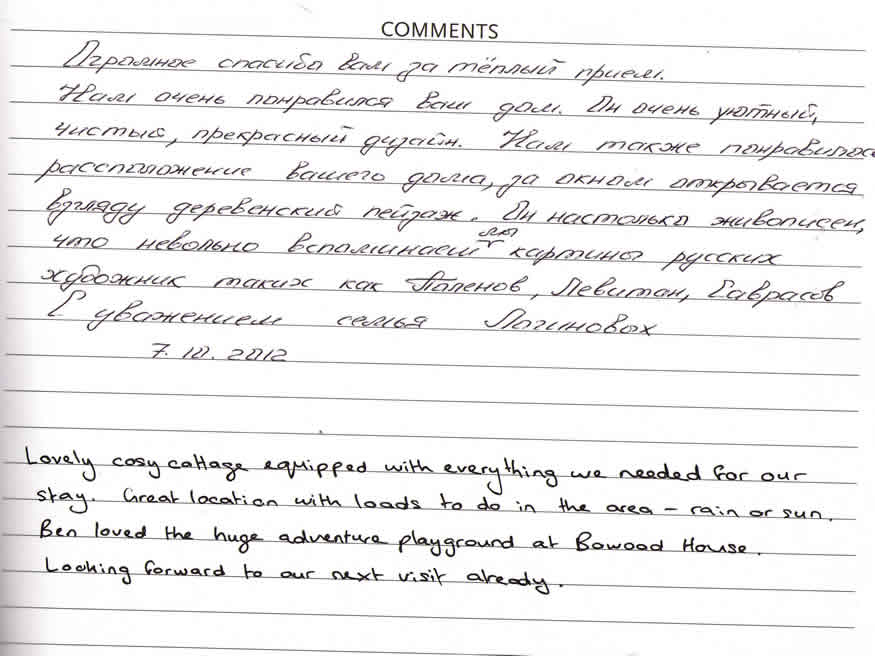 COMMENTS
Огромное спасибо вам за тёплый прием.
Нам очень понравился ваш дом. Он очень уютный,
чистый, прекрасный дизайн. Нам также понравилос
рассположение вашего дома, за окном открывается
взгляду деревенский пейзаж. Он настолько живописен,
что невольно вспоминаешь картины русских
художник таких как Паленов, Левитан, Саврасов
С уважением семья Логиновох
7.10.2012
Lovely cosy cottage equipped with everything we needed for our
stay. Great location with loads to do in the area – rain or sun.
Ben loved the huge adventure playground at Bowood House.
Looking forward to our next visit already.